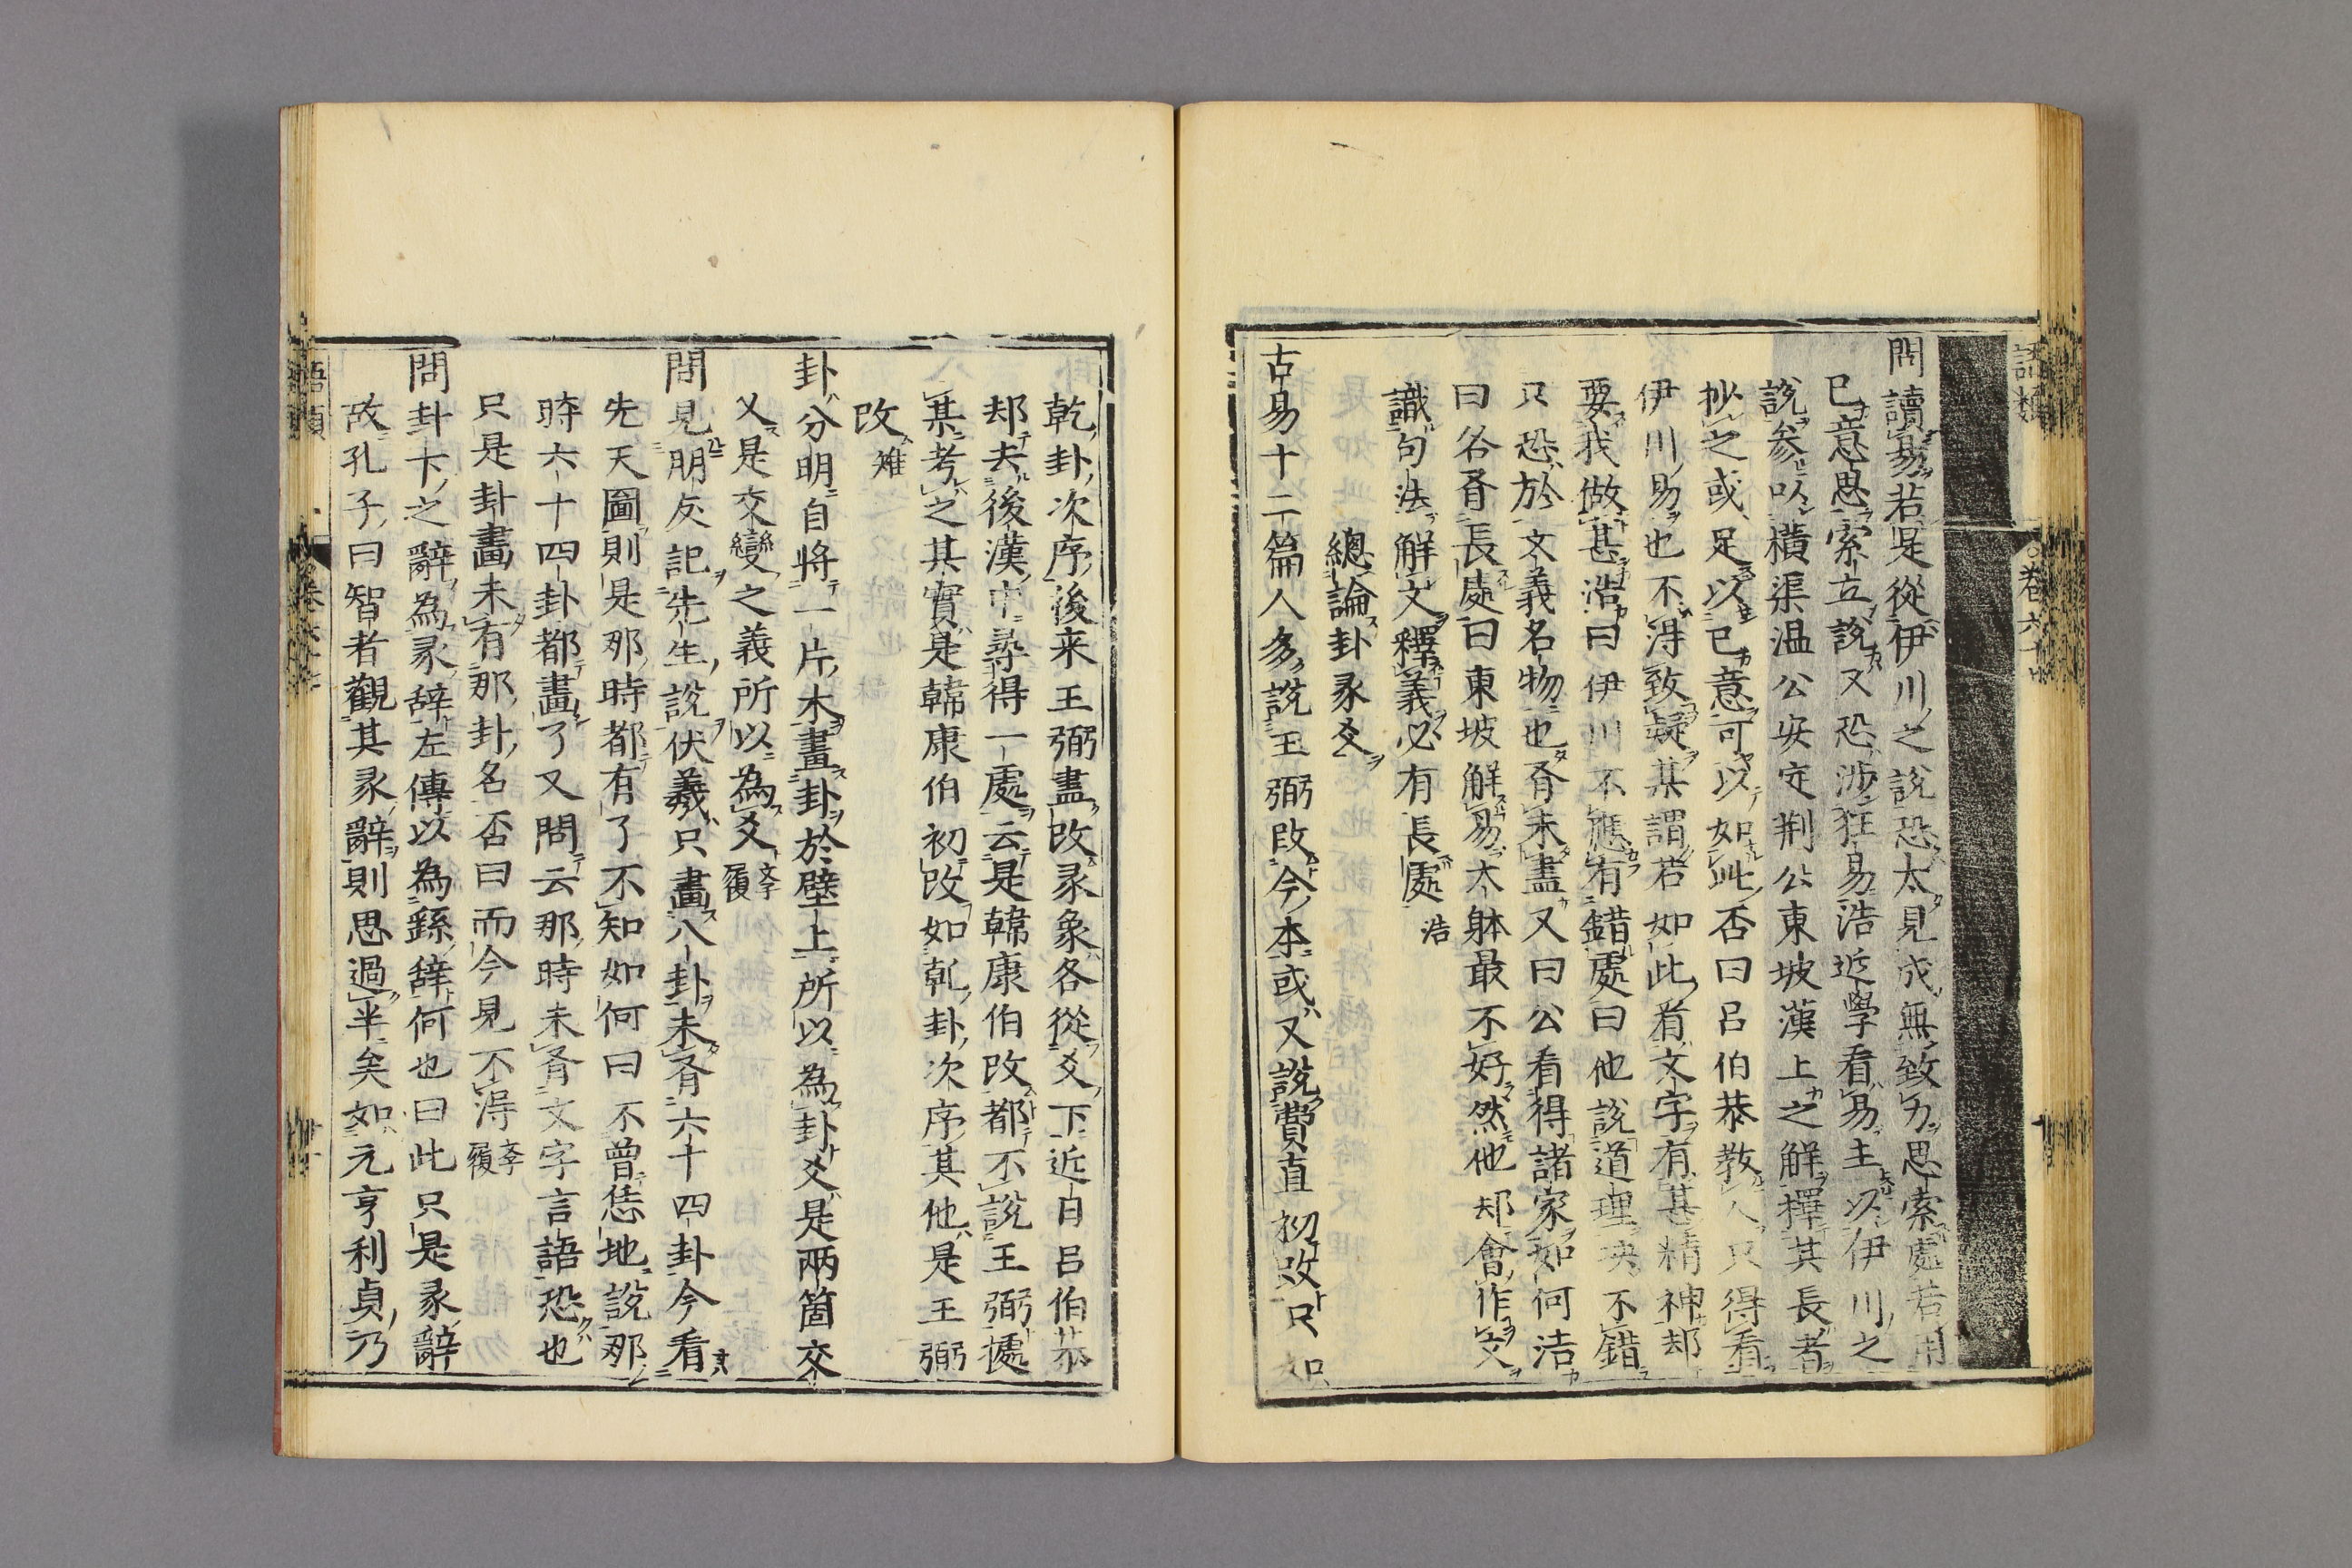 問讀易若只從伊川之說恐太見成無致力思索處若用
已意思索立說又恐涉狂易浩近學看易主以伊川之
說参以横渠温公安定荆公東坡漢上之解擇其長者
抄之或足以已意可以如此否曰呂伯恭教人只得看
伊川易也不得致疑某謂若如此看文字有甚精神却
要我做甚浩曰伊川不應有錯處曰他說道理决不錯
只恐於文義名物也有未盡又曰公看得諸家如何浩
曰各有長處曰東坡解易大躰最不好然他却會作文
識句法解文釋義必有長處 浩
總論卦彖爻
古易十二篇人多說王弼改今本或又說費直初改只如
乾卦次序後来王弼盡改彖象各從爻下近日呂伯恭
却去後漢中尋得一處云是韓康伯改都不說王弼據
某考之其實是韓康伯初改如乹卦次序其他是王弼
改 雉
卦分明自將一片木畫卦於壁上所以為卦爻是兩箇交
乂是交變之義所以為爻 學履
問見朋友記先生說伏羲只畫八卦未有六十四卦今看
先天圖則是那時都有了不知如何曰不曾恁地說那
時六十四卦都畫了又問云那時未有文字言語恐也
只是卦畫未有那卦名否曰而今見不得 學履
問卦下之辭為彖辞左傳以為繇辞何也曰此只是彖辭
故孔子曰智者觀其彖辭則思過半矣如元亨利貞乃
語類
卷六十七